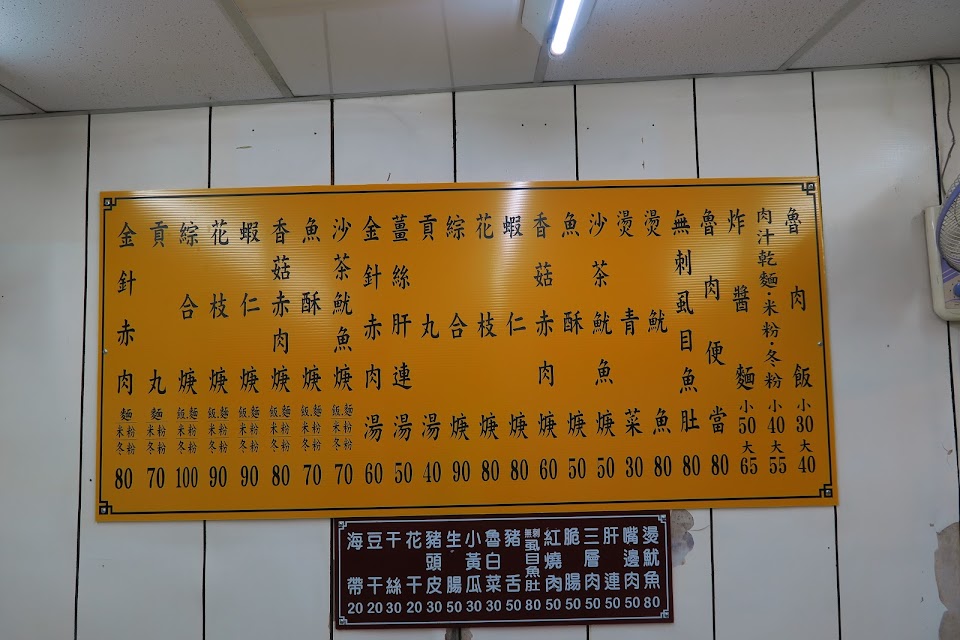 魯肉飯 小30 大40
肉汁乾麵·米粉·冬粉 小40 大55
炸醬麵 小50 大65
魯肉便當 80
無刺虱目魚肚 80
燙魷魚 80
燙青菜 30
沙茶魷魚焿 50
魚酥焿 50
香菇赤肉焿 60
蝦仁焿 80
花枝焿 80
綜合焿 90
貢丸湯 40
薑絲肝連湯 50
金針赤肉湯 60
沙茶魷魚焿 飯.麵 米粉 冬粉 70
魚酥焿 飯.麵 米粉 冬粉 70
香菇赤肉焿 飯.麵 米粉 冬粉 80
蝦仁焿 飯.麵 米粉 冬粉 90
花枝焿 飯.麵 米粉 冬粉 90
綜合焿 飯.麵 米粉 冬粉 100
貢丸 麵 米粉 冬粉 70
金針赤肉 麵 米粉 冬粉 80
燙魷魚 80
嘴邊肉 50
肝連 50
三層肉 50
脆腸 50
紅燒肉 50
無刺虱目魚肚 80
豬舌 50
魯白菜 30
小黃瓜 30
生腸 50
豬頭皮 30
花干 20
干絲 30
豆干 20
海帶 20